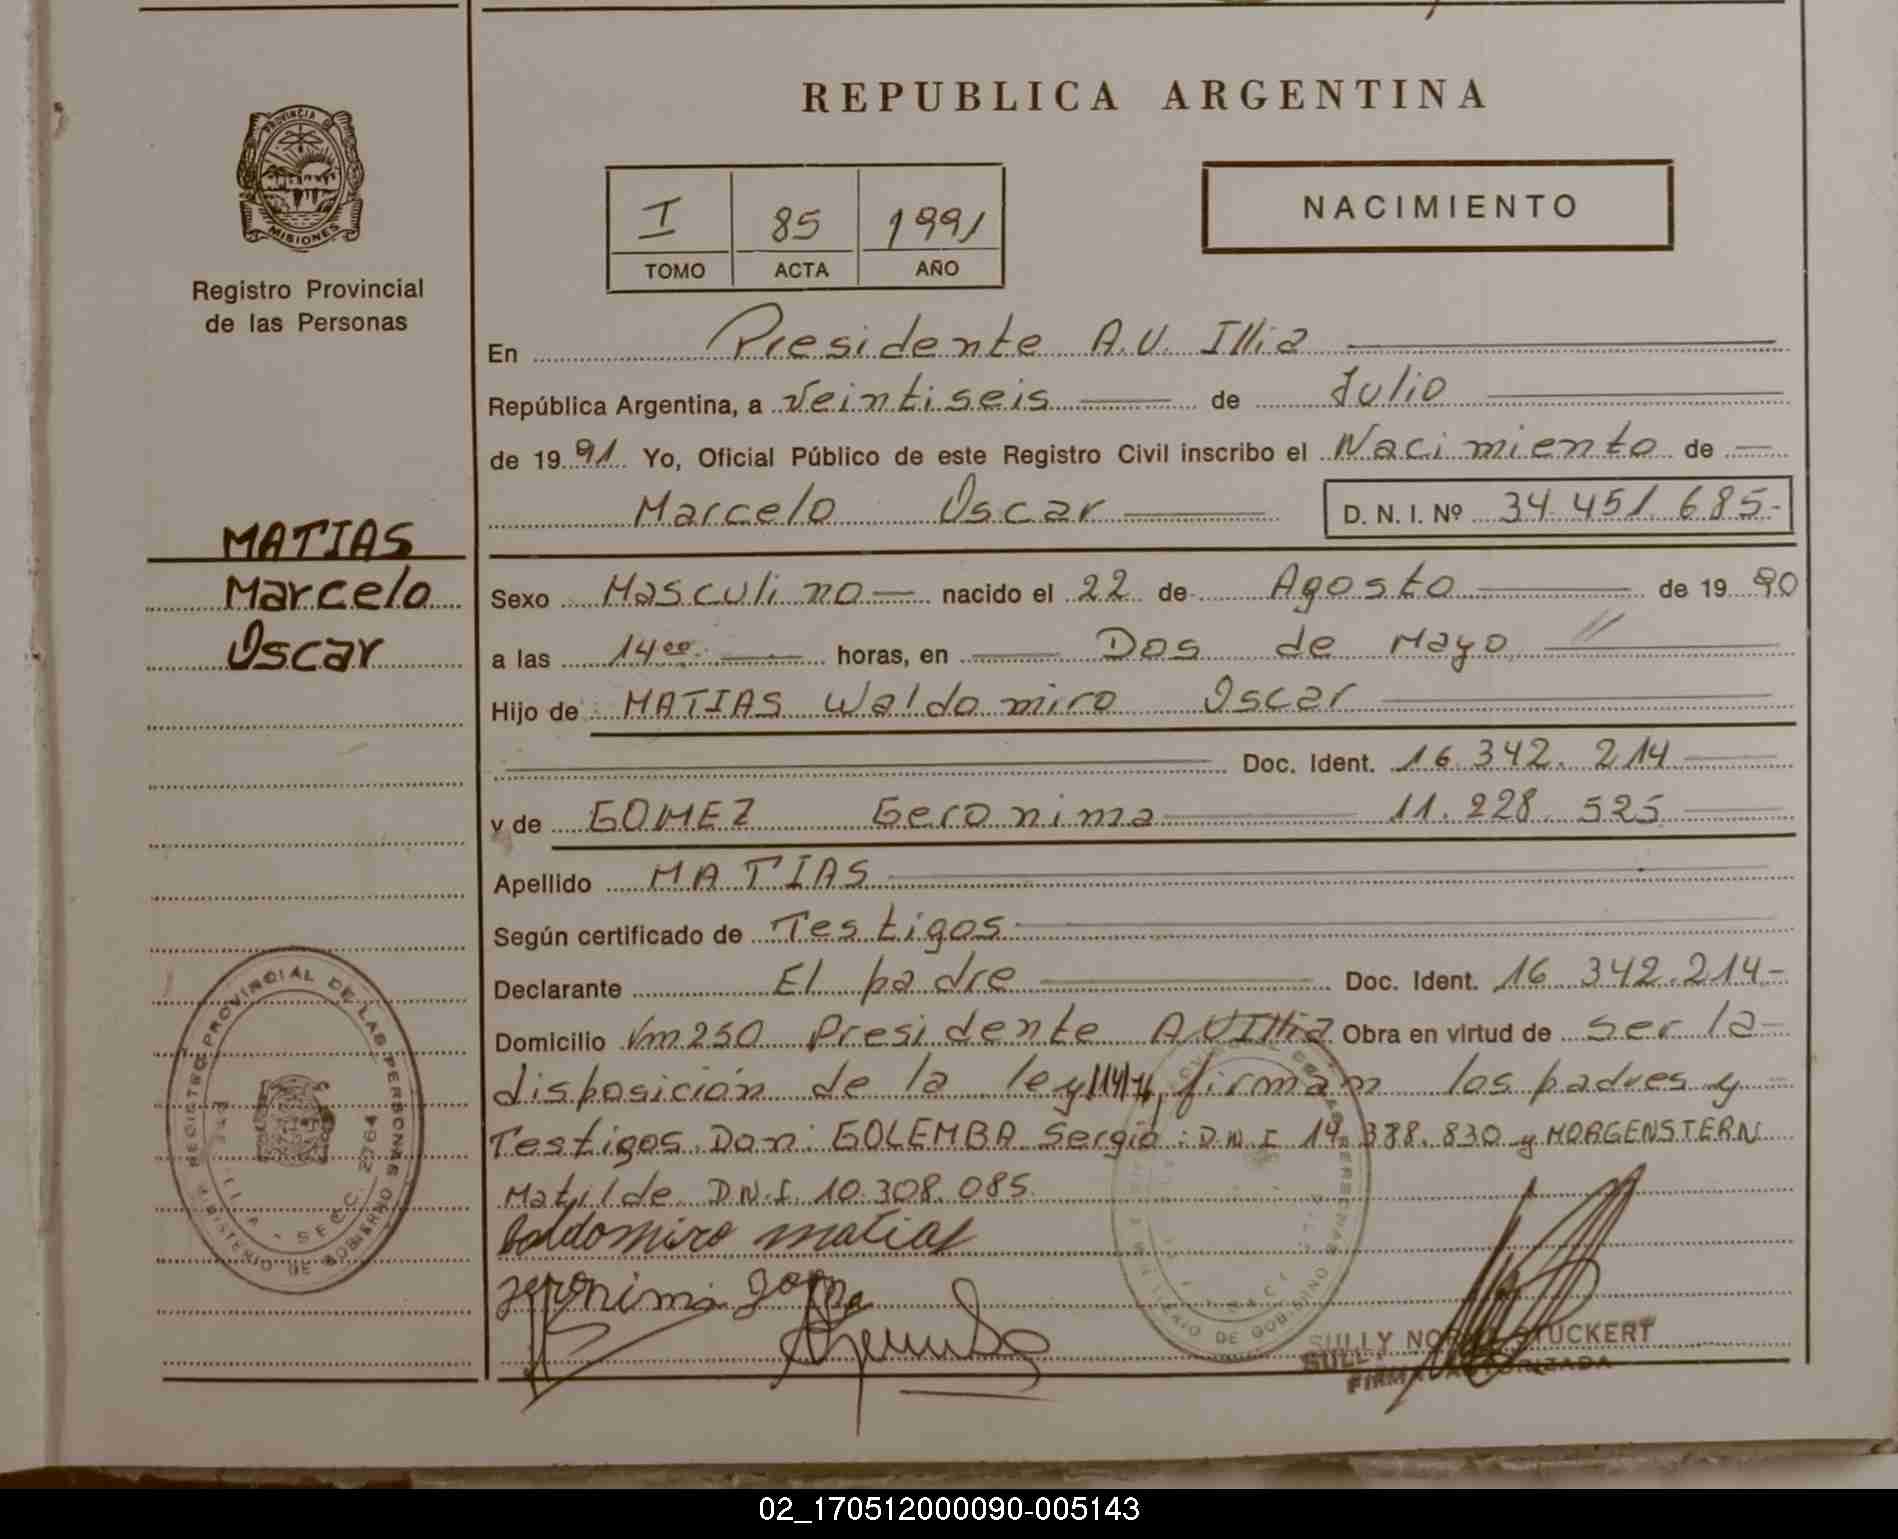 REPUBLICA ARGENTINA
PROVINCIA DE
MISIONES
Registro Provincial
de las Personas
I 85 1991
TOMO ACTA AÑO
NACIMIENTO
En Presidente A.U. Illia
República Argentina, a Veintiseis de Julio
de 1991 Yo, Oficial Público de este Registro Civil inscribo el Nacimiento de
Marcelo Oscar D. N. I. Nº 34.451.685.-
MATIAS
Marcelo
Oscar
Sexo Masculino nacido el 22 de Agosto de 1990
a las 14 00 horas, en Dos de Mayo
Hijo de MATIAS Waldomiro Oscar
Doc. Ident. 16.342.214
y de GOMEZ Geronima 11.228.525
Apellido MATIAS
Según certificado de Testigos
Declarante El padre Doc. Ident. 16.342.214-
Domicilio Km 250 Presidente A.U Illia Obra en virtud de ser la-
disposición de la ley firman los padres y
Testigos Don: GOLEMBA Sergio: D.N.I 14.388.830 y MORGENSTERN
Matilde D.N.I. 10.308.085
baldomiro matias
jeronima
REGISTRO PROVINCIAL DE LAS PERSONAS
MINISTERIO DE GOBIERNO
SECC. 2764
SULLY STUCKERT
FIRMA AUTORIZADA
02_170512000090-005143